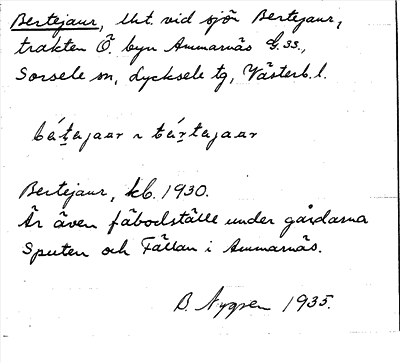 Bertejaur, lht. vid sjön Bertejaur,
trakten Ö. byn Ammarnäs G.ss.,
Sorsele sn, Lycksele tg, Västerb. l.
Bertejaur, kb. 1930.
Är även fäbodställe under gårdarna
Sputen och Fällan i Ammarnäs.
B. Nygren 1935.